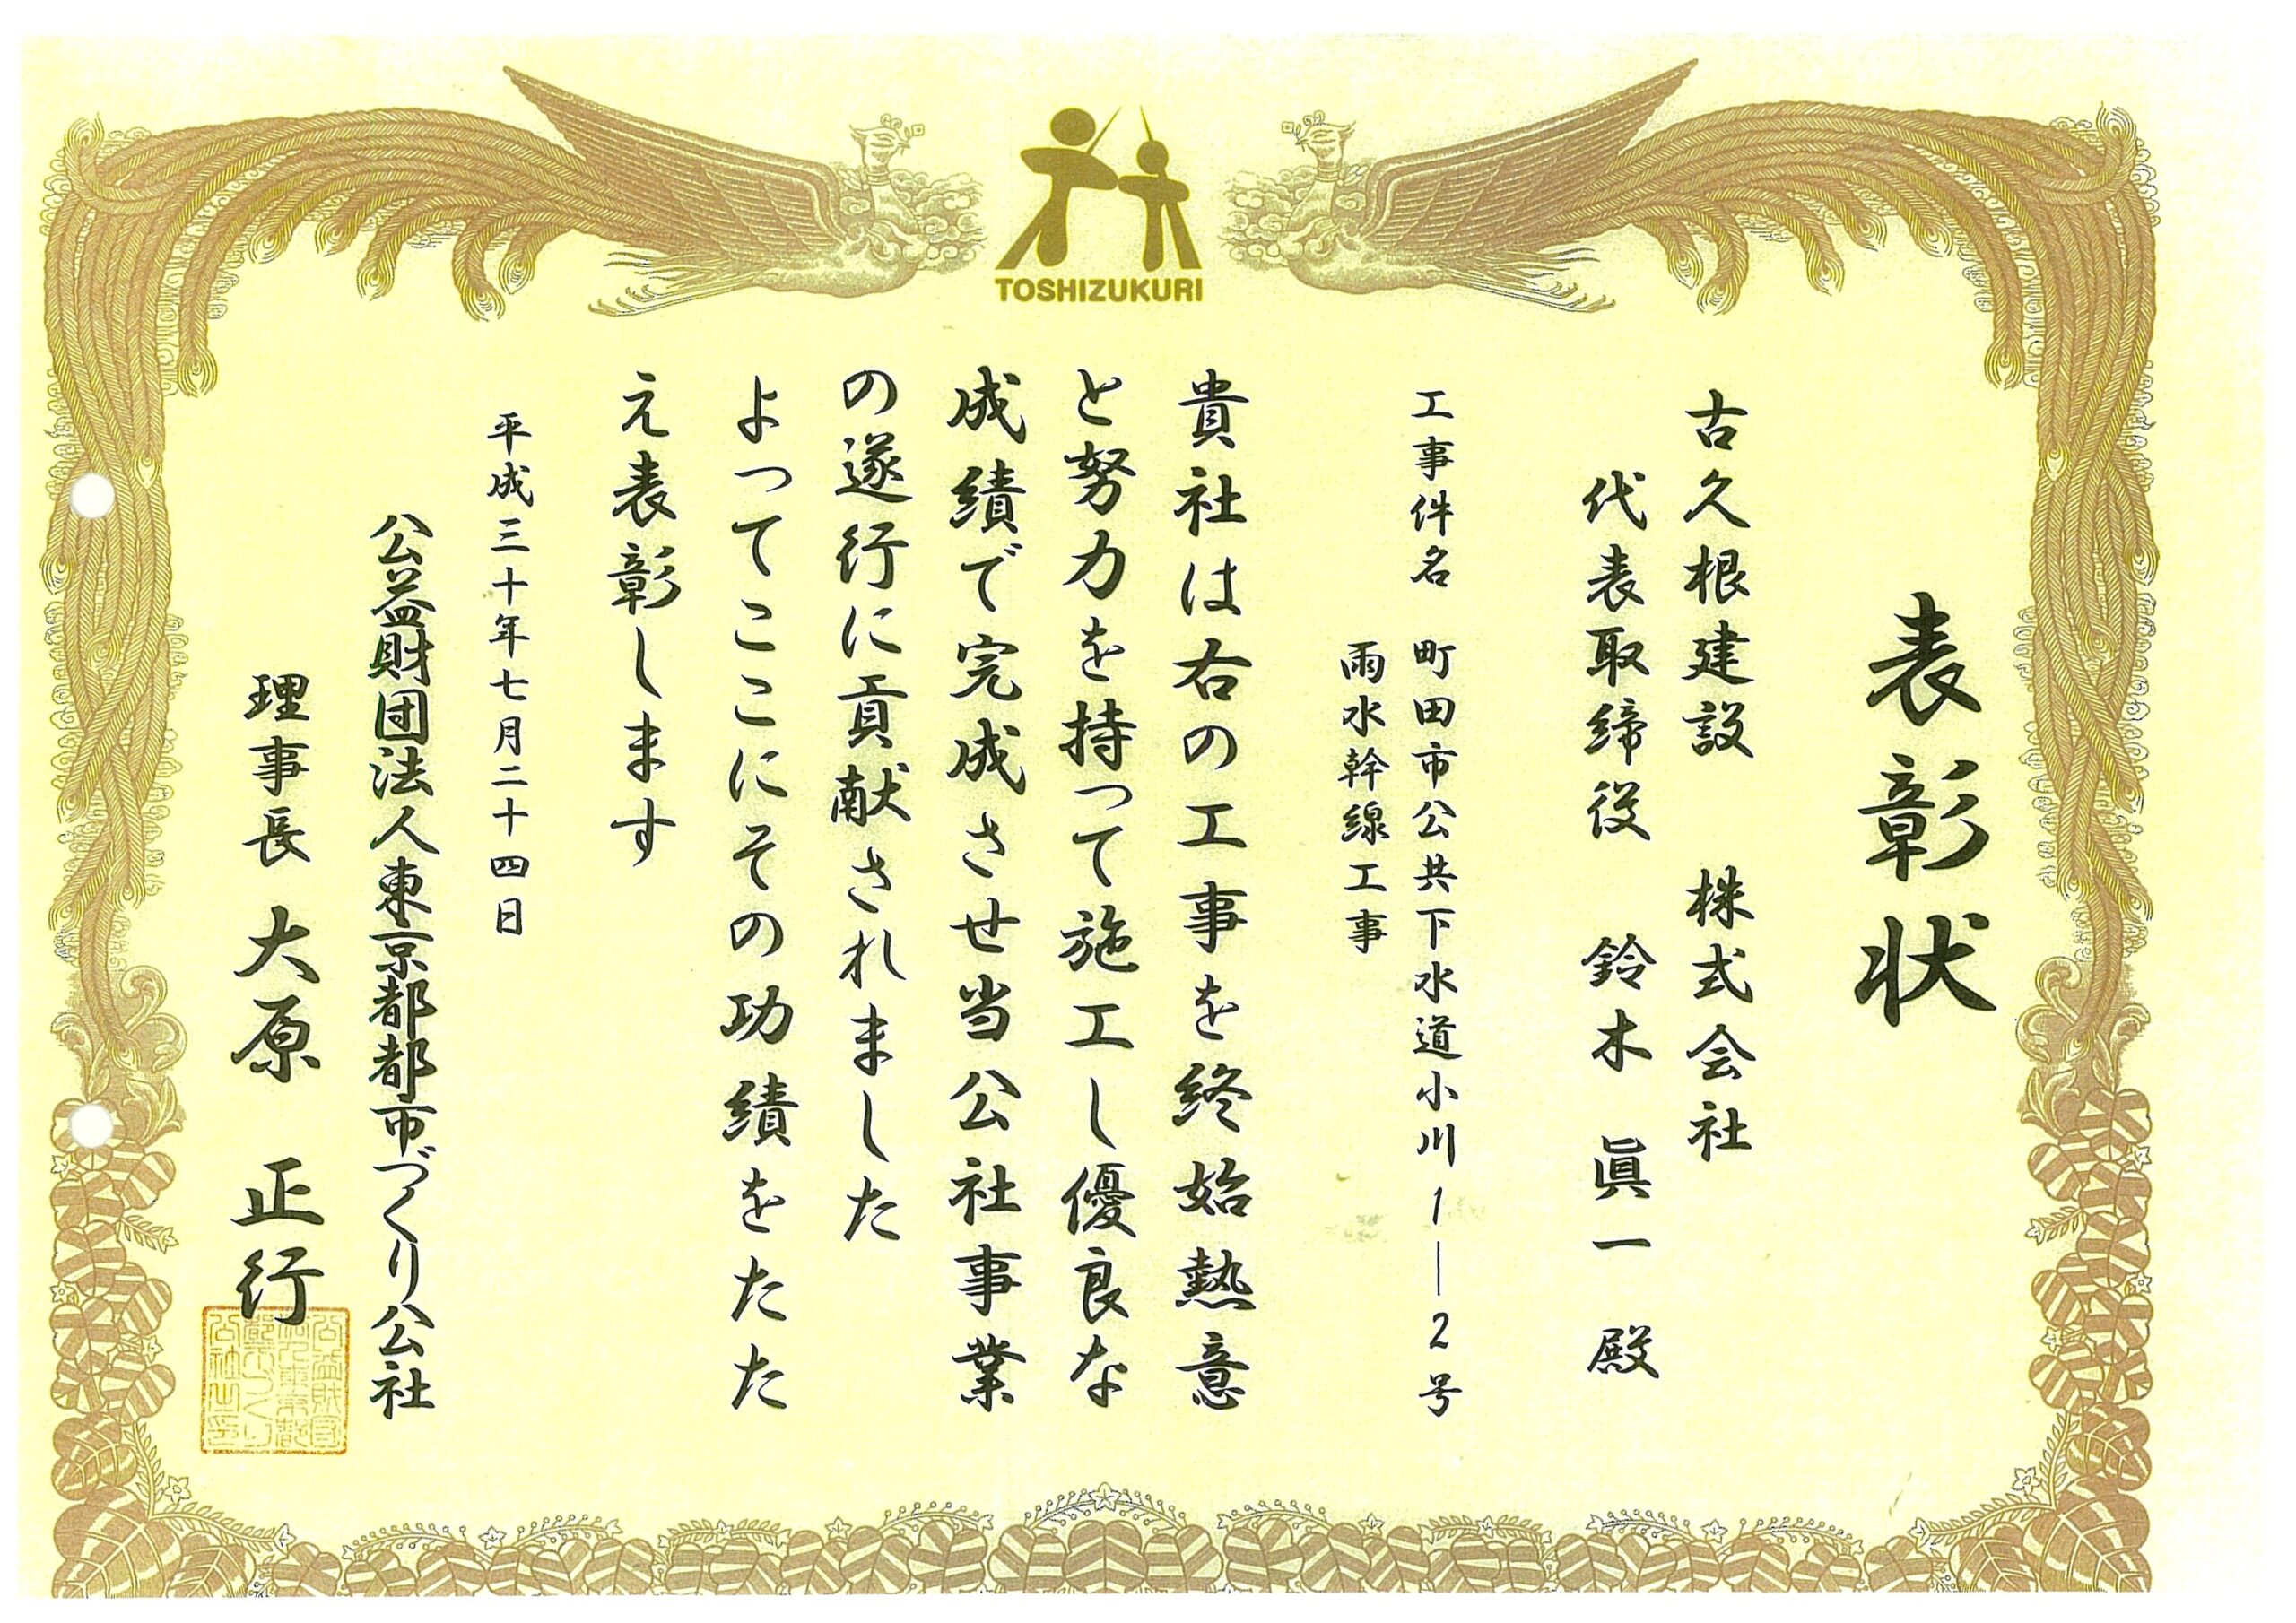 TOSHIZUKURI
表彰状
古久根建設 株式会社
代表取締役 鈴木 眞一 殿
工事件名 町田市公共下水道小川1―2号
雨水幹線工事
貴社は右の工事を終始熱意
と努力を持って施工し優良な
成績で完成させ当公社事業
の遂行に貢献されました
よってここにその功績をたた
え表彰します
平成三十年七月二十四日
公益財団法人東京都都市づくり公社
理事長 大原 正行